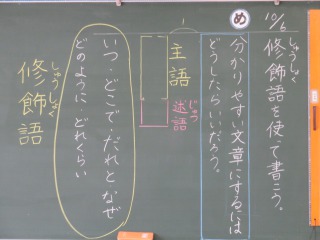 10/6
修飾語を使って書こう。
しゅうしょく
め
分かりやすい文章にするには
どうしたらいいだろう。
主語
述語
じゅつ
いつ・どこで・だれと・なぜ
どのように・どれくらい
修飾語
しゅうしょく